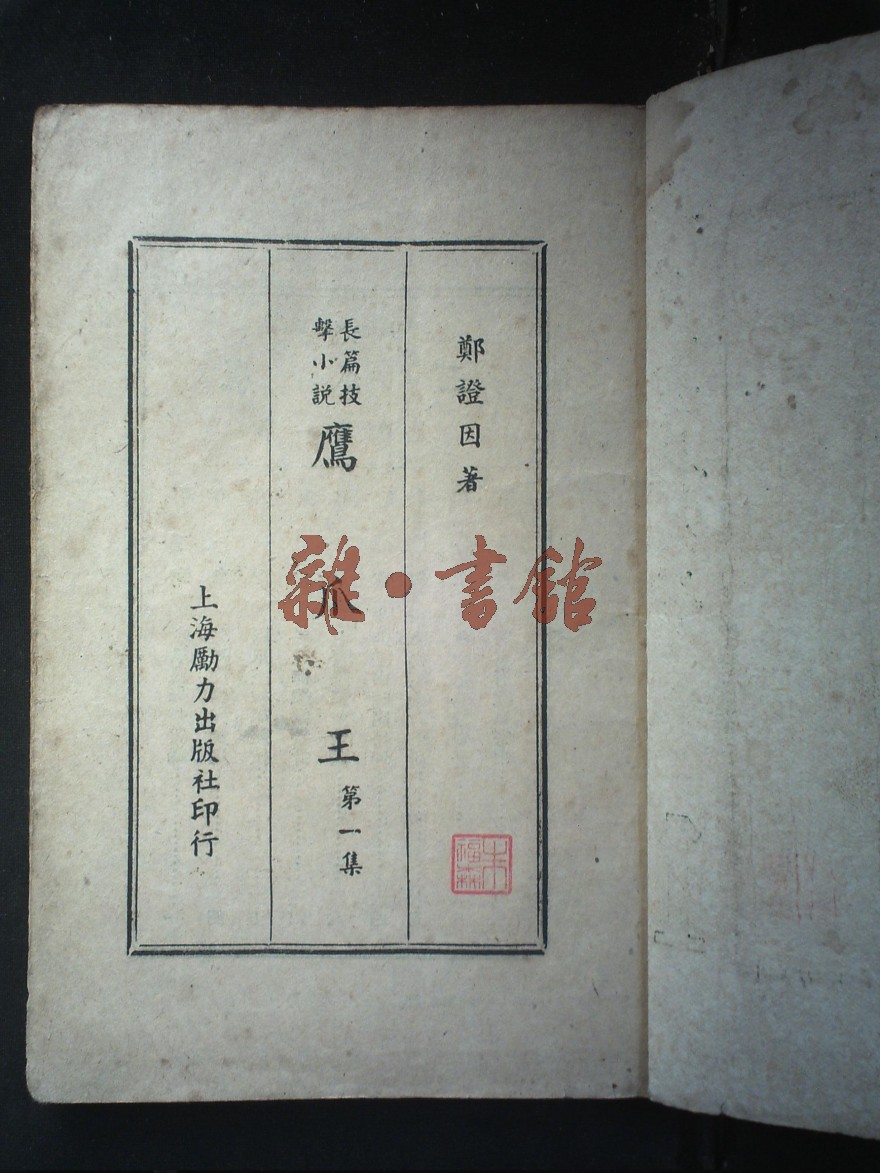 鄭證因著
長篇技
擊小説
鷹爪王
第一集
上海勵力出版社印行
雜·書館
朱福森